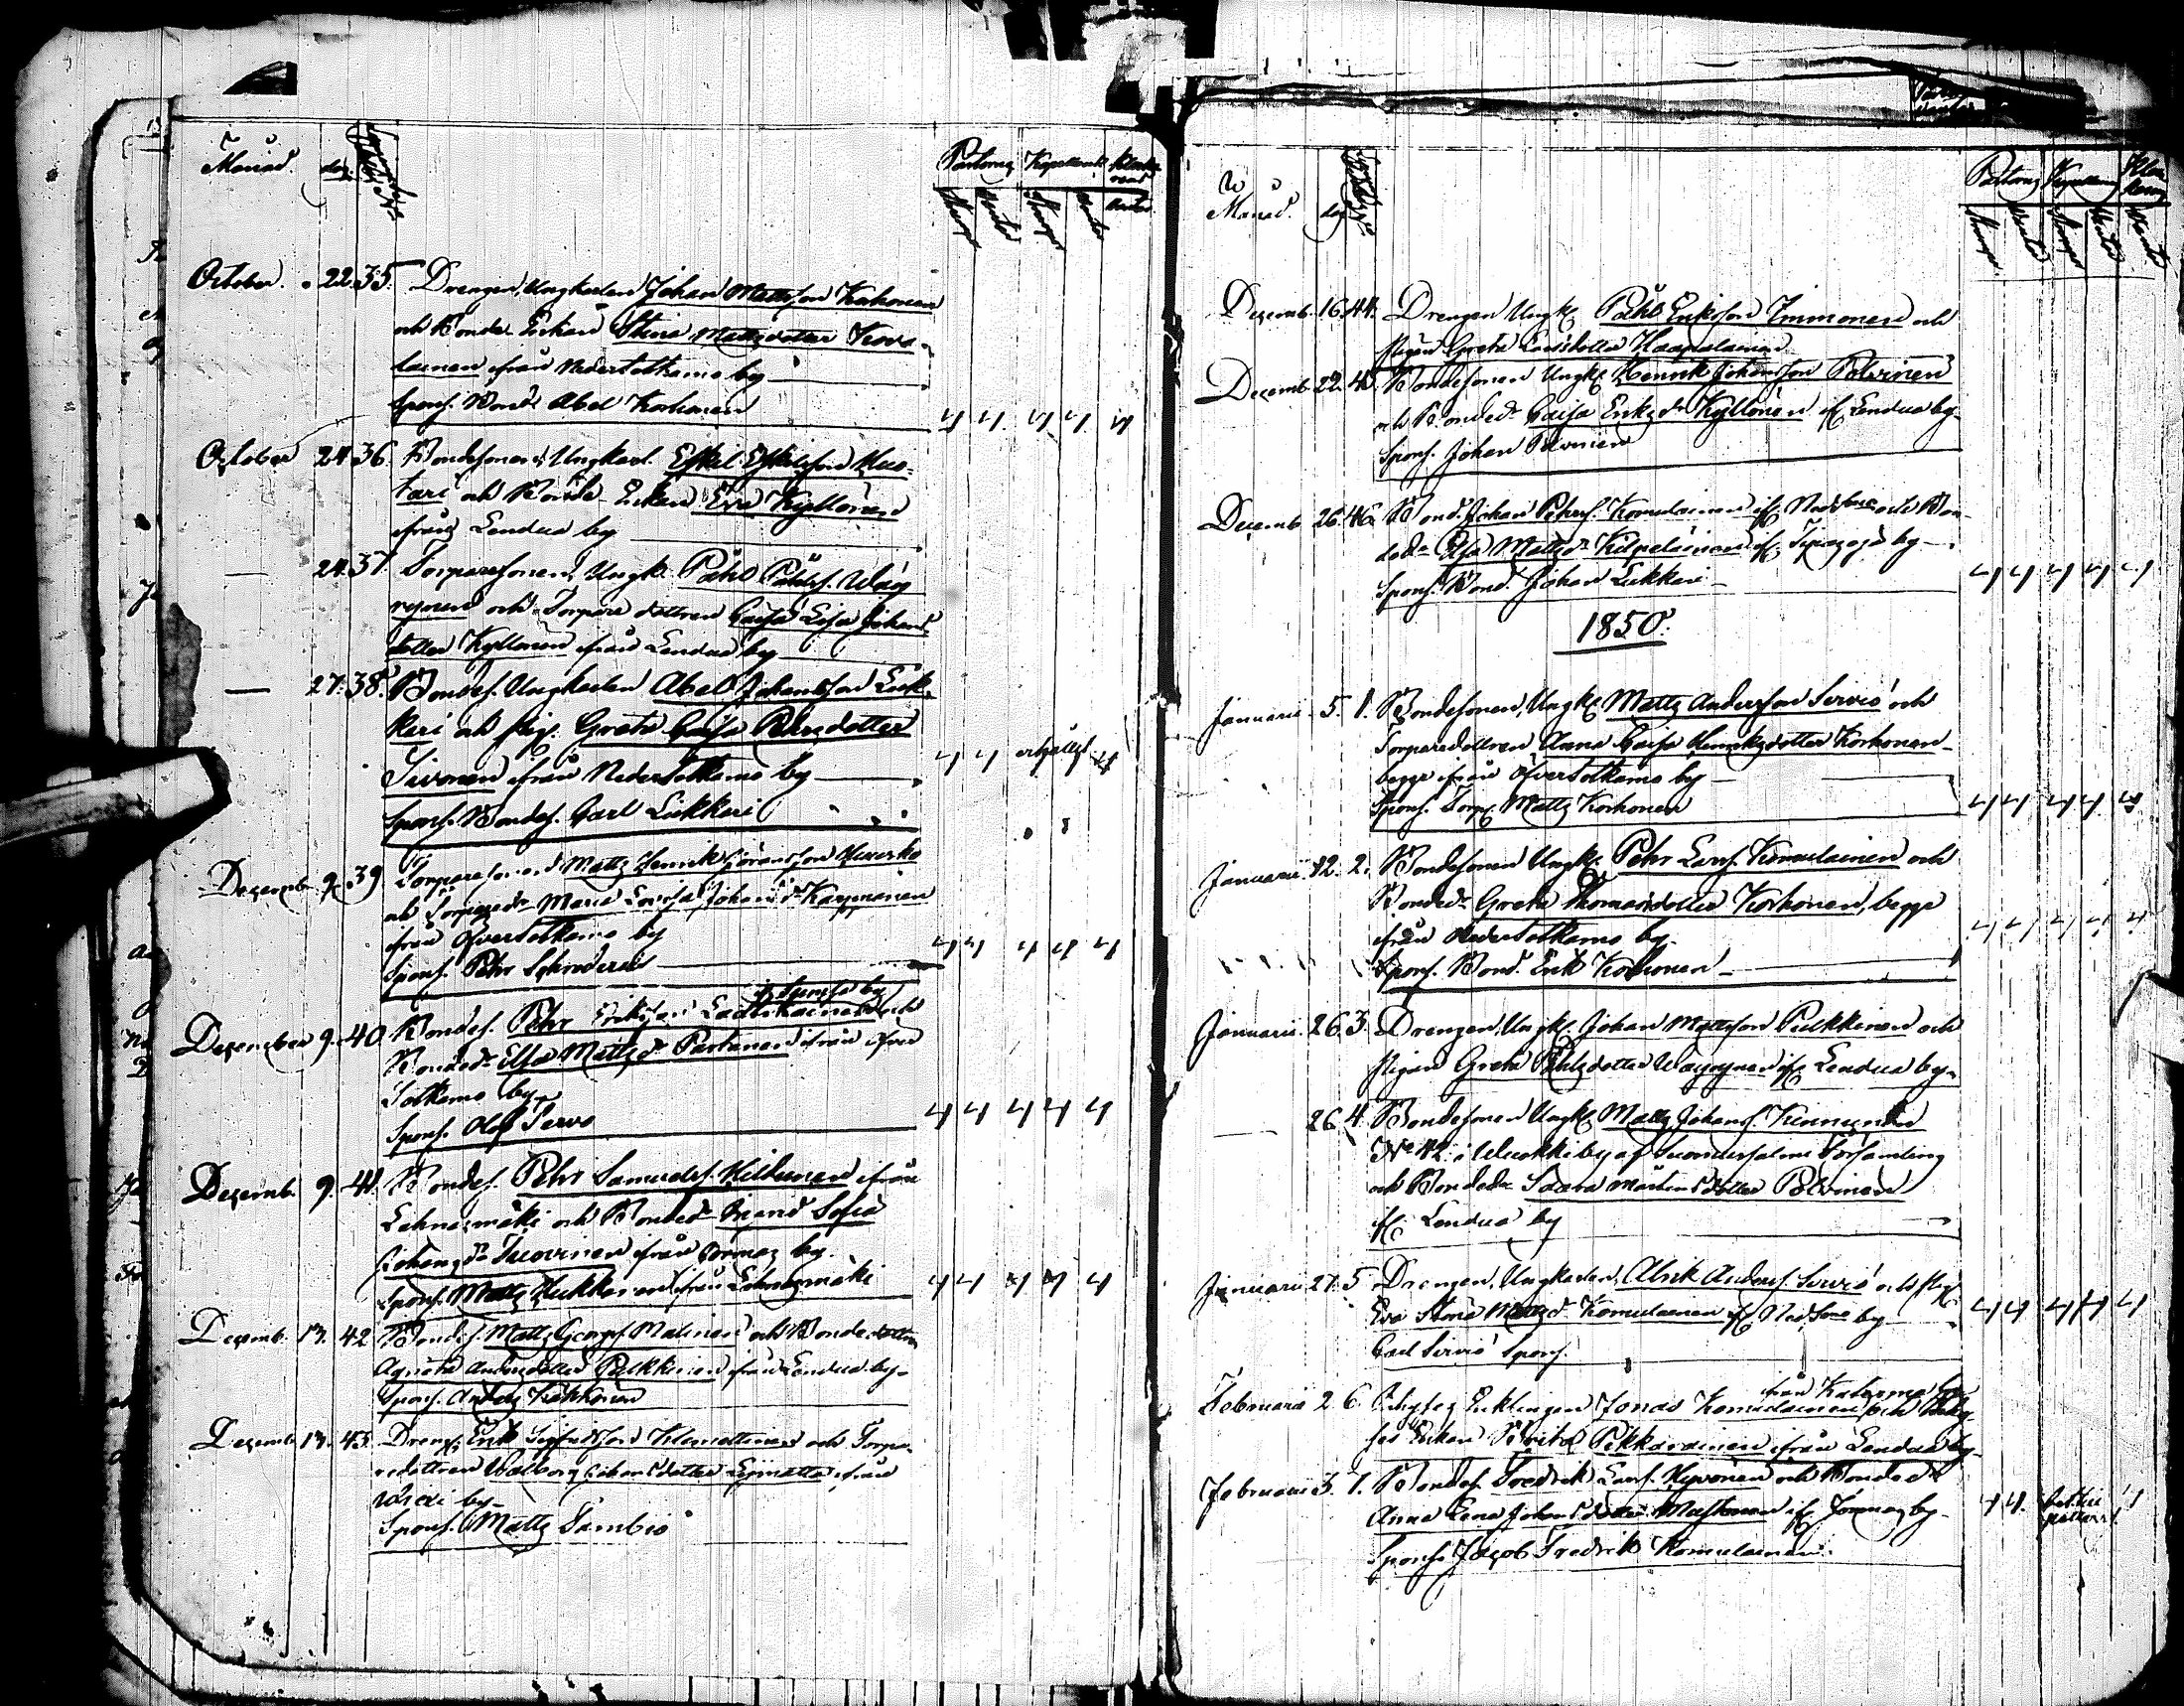 Månad. dag. Pastorn Kapellanen
October. 22. 35. Drengen, Ungkarlen Johan Mattsson Korhonen
och Bonde Enkan Stina Mattsdotter Kova-
lainen ifrån Nedersotkamo by
spons. Bond. Abel Korhonen
October 24. 36. Bondesonen, Ungkarl. Eskil Eskilsson Huo-
tari och Bonde Enkan Eva Kyllönen
ifrån Lendua by
— 24. 37. Torparesonen, Ungk. Påhl Påhlss. Väy
rynen och Torpare dottren Caisa Lisa Johans
dotter Kyllönen ifrån Lendua by
— 27. 38. Bondes. Ungkarlen Abel Johansson Luk-
keri och pig. Greta Caisa Pehrsdotter
Sivonen ifrån Nedersotkamo by
Spons. Bondes. Carl Lukkari
Decemb. 9. 39. Torparesonen Matts Henrik Göransson
och Torparedr Maria Lovisa Johansdr Karppinen
ifrån Öfversotkamo by
Spons. Pehr Schroderus
December 9. 40. Bondes. Pehr Eriksson och
Bondedr Elsa Mattsdr Partanen ifrån Öfver
Sotkamo by
Spons. Olof Servo
Decemb. 9. 41. Bondes. Pehr Samuelss. Heikkinen ifrån
Lahnasmäki och Bondedr Maria Sofia
Johansdr Tuovinen ifrån Jormas by.
Spons. Matts Hukkanen ifrån Lahnasmäki
Decemb. 13. 42 Bondes. Matts Georgs. Malinen och Bondedottren
Agneta Andersdotter Pulkkinen ifrån Lendua by
Spons. Anders
Decemb. 13. 43. Dreng. Erik Sigfridsson Kilmettinen och Torpa-
redottren Valborg Johansdotter ifrån
by
Spons. Matts Tambio
Månad. dag
Decemb. 16. 44. Drengen Ungk. Påhl Eriksson Immonen och
pigan Greta Larsdotter Haapalainen
Decemb. 22. 45. Bondesonen Ungk. Henrik Johansson Polvinen
och Bondedr Caisa Eriksdr Kyllönen if. Lendua by
Spons. Johan Polvinen
Decemb. 26. 46. Bond. Johan Pehrss. Komulainen if. Ned. Smo och Bon-
dedr Elsa Mattsdr Kilpeläinen if. Tipasoja by
Spons. Bond. Johan Lukkari
1850.
Januarii 5. 1. Bondesonen, Ungk. Matts Andersson Serviö och
Torparedottren Anna Caisa Henriksdotter Korhonen
begge ifrån Öfversotkamo by
Spons. Torp. Matts Korhonen
Januarii 12. 2. Bondesonen Ungk. Pehr Larss. Komulainen och
Bondedr Greta Thomasdotter Korhonen, begge
ifrån Nedersotkamo by.
Spons. Bond. Erik Korhonen
Januarii. 26. 3. Drengen, Ungk. Johan Mattsson Pulkkinen och
pigan Greta Påhlsdotter Väyrynen if. Lendua by
— 26. 4. Bondesonen Ungk. Matts Johans. Kinnunen
No 42 i Vuokki by af Suomussalmi Församling
och Bondedr Saara Mårtensdotter Polvinen
if. Lendua by
Januarii 27. 5. Drengen, Ungkarlen, Alrik Anderss. Serviö och pig.
Eva Stina Mattsdr Komulainen if. Ned. Smo by
Carl Serviö Spons.
Februarii 2. 6. Inhyses Enklingen Jonas Komulainen ifrån Katerma by och Inhy-
ses Enkan Brita Pikkarainen ifrån Lendua by
Februarii 3. 7. Bondes. Fredrik Larss. Hyvönen och Bondedr
Anna Lena Johansdotter Mustonen if. Jormas by
Spons. Jacob Fredrik Komulainen